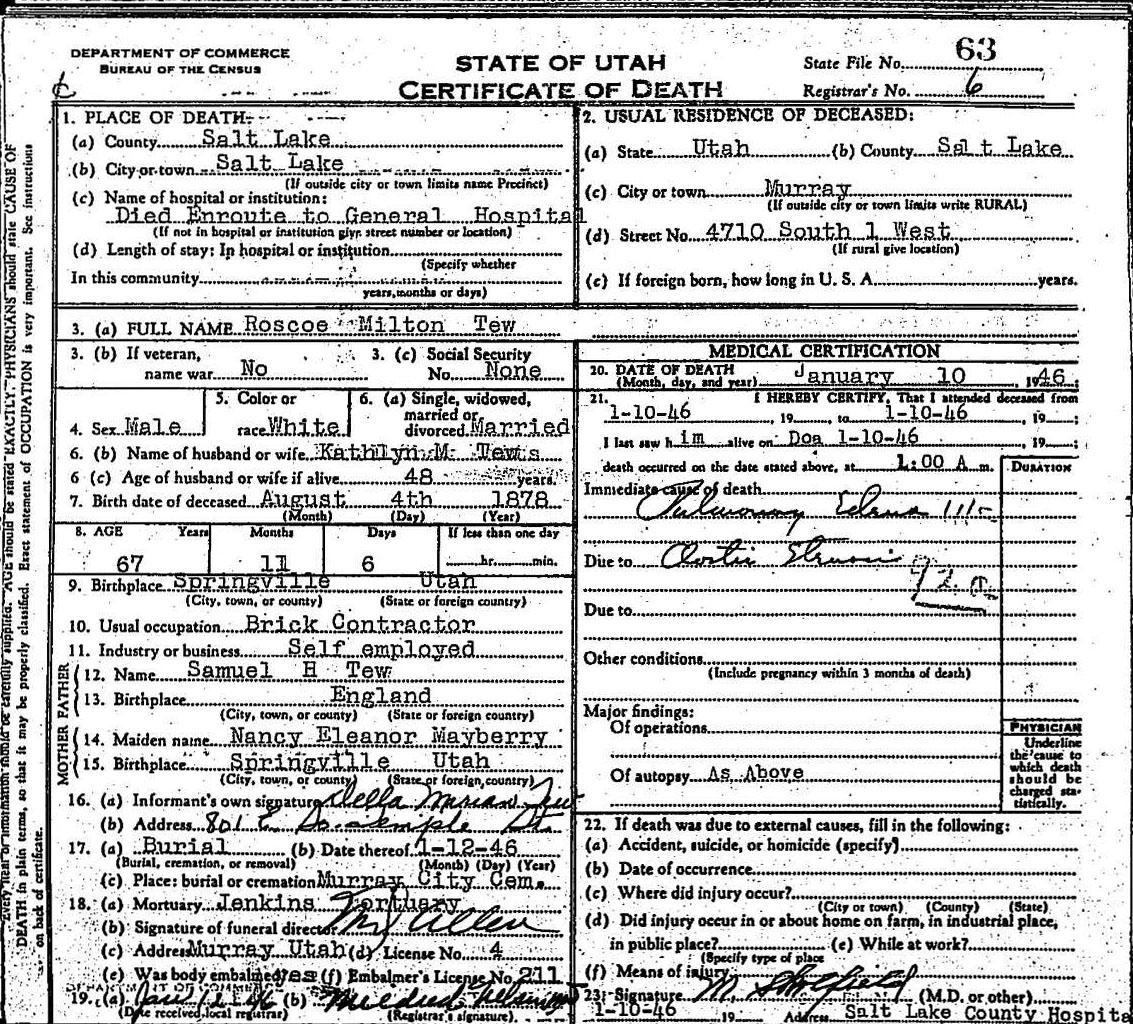 DEPARTMENT OF COMMERCE
BUREAU OF THE CENSUS
STATE OF UTAH
CERTIFICATE OF DEATH
State File No. 63
Registrar's No. 6
1. PLACE OF DEATH:
(a) County Salt Lake
(b) City or town Salt Lake
(If outside city or town limits name Precinct)
(c) Name of hospital or institution:
Died Enroute to General Hospital
(If not in hospital or institution give street number or location)
(d) Length of stay: In hospital or institution
(Specify whether
In this community
years, months or days)
2. USUAL RESIDENCE OF DECEASED:
(a) State Utah (b) County Salt Lake
(c) City or town Murray
(If outside city or town limits write RURAL)
(d) Street No. 4710 South 1 West
(If rural give location)
(e) If foreign born, how long in U. S. A. years.
3. (a) FULL NAME Roscoe Milton Tew
3. (b) If veteran, name war No
3. (c) Social Security No. None
4. Sex Male
5. Color or race White
6. (a) Single, widowed, married or divorced Married
6. (b) Name of husband or wife Kathlyn M. Tews
6 (c) Age of husband or wife if alive 48 years.
7. Birth date of deceased August 4th 1878
(Month) (Day) (Year)
8. AGE Years Months Days If less than one day
67 11 6 hr. min.
9. Birthplace Springville Utah
(City, town, or county) (State or foreign country)
10. Usual occupation Brick Contractor
11. Industry or business Self employed
FATHER
12. Name Samuel H Tew
13. Birthplace England
(City, town, or county) (State or foreign country)
MOTHER
14. Maiden name Nancy Eleanor Mayberry
15. Birthplace Springville Utah
(City, town, or county) (State, or foreign, country)
16. (a) Informant's own signature Della Marian Tew
(b) Address 801 E. So. Temple St.
17. (a) Burial (b) Date thereof 1-12-46
(Burial, cremation, or removal) (Month) (Day) (Year)
(c) Place: burial or cremation Murray City Cem.
18. (a) Mortuary Jenkins Mortuary
(b) Signature of funeral director Allen
(c) Address Murray Utah (d) License No. 4
(e) Was body embalmed yes (f) Embalmer's License No. 211
DEPARTMENT OF COMMERCE
19. (a) Jan 12 46 (b) Mildred
(Date received local registrar) (Registrar's signature)
MEDICAL CERTIFICATION
20. DATE OF DEATH
(Month, day, and year) January 10, 1946;
21. I HEREBY CERTIFY, That I attended deceased from
1-10-46, 19 to 1-10-46, 19 ;
I last saw him alive on Doa 1-10-46, 19 ;
death occurred on the date stated above, at 1:00 A m.
DURATION
Immediate cause of death
Pulmonary Edema
Due to Aortic Stenosis
Due to
Other conditions
(Include pregnancy within 3 months of death)
Major findings:
Of operations
Of autopsy As Above
PHYSICIAN
Underline
the cause to
which death
should be
charged sta-
tistically.
22. If death was due to external causes, fill in the following:
(a) Accident, suicide, or homicide (specify)
(b) Date of occurrence
(c) Where did injury occur?
(City or town) (County) (State)
(d) Did injury occur in or about home on farm, in industrial place,
in public place? (e) While at work?
(Specify type of place
(f) Means of injury
23. Signature M. (M.D. or other)
1-10-46 19 Address Salt Lake County Hospita
DEATH in plain terms, so that it may be properly classified. Exact statement of OCCUPATION is very important. See instructions
on back of certificate.